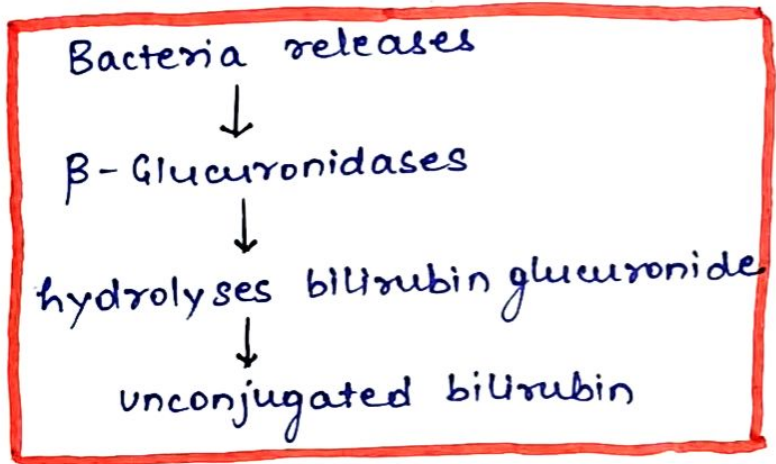 Bacteria releases
↓
β-Glucuronidases
↓
hydrolyses bilirubin glucuronide
↓
unconjugated bilirubin